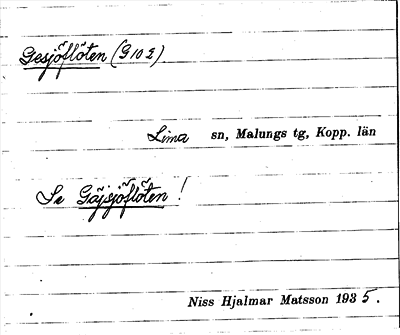 Gesjöflöten (G 10 2)
Lima sn, Malungs tg, Kopp. län
Se Gäjsjöflöten!
Niss Hjalmar Matsson 1935.